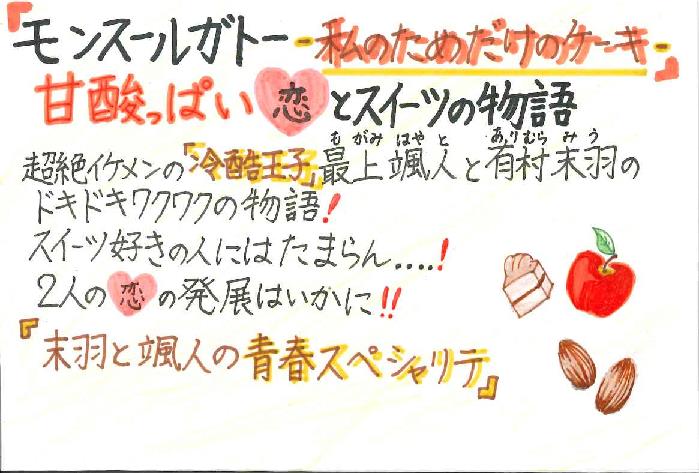 『モンスールガトー -私のためだけのケーキ-』
甘酸っぱい恋とスイーツの物語
超絶イケメンの「冷酷王子」最上颯人と有村末羽の
もがみ はやと ありむら みう
ドキドキワクワクの物語!
スイーツ好きの人にはたまらん....!
2人の恋の発展はいかに!!
『末羽と颯人の青春スペシャリテ』